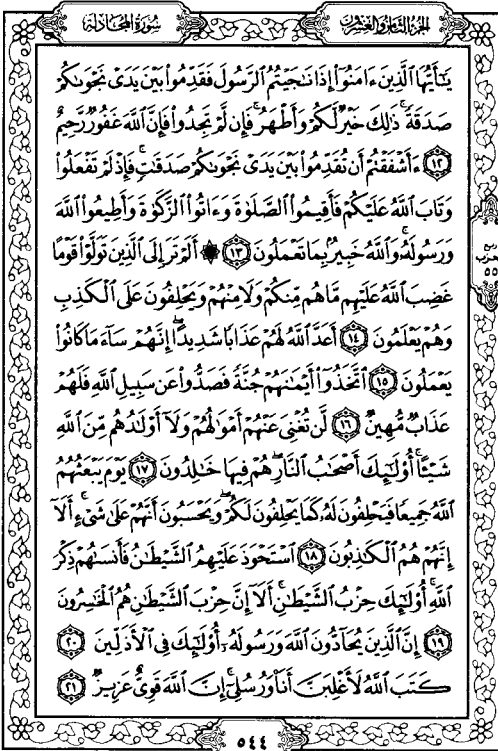 سُورَةُ المُجَادلة
الجزء الثامن والعشرون
يَٰٓأَيُّهَا ٱلَّذِينَ ءَامَنُوٓا۟ إِذَا نَٰجَيْتُمُ ٱلرَّسُولَ فَقَدِّمُوا۟ بَيْنَ يَدَىْ نَجْوَىٰكُمْ
صَدَقَةً ۚ ذَٰلِكَ خَيْرٌ لَّكُمْ وَأَطْهَرُ ۚ فَإِن لَّمْ تَجِدُوا۟ فَإِنَّ ٱللَّهَ غَفُورٌ رَّحِيمٌ
١٢ ءَأَشْفَقْتُمْ أَن تُقَدِّمُوا۟ بَيْنَ يَدَىْ نَجْوَىٰكُمْ صَدَقَٰتٍ ۚ فَإِذْ لَمْ تَفْعَلُوا۟
وَتَابَ ٱللَّهُ عَلَيْكُمْ فَأَقِيمُوا۟ ٱلصَّلَوٰةَ وَءَاتُوا۟ ٱلزَّكَوٰةَ وَأَطِيعُوا۟ ٱللَّهَ
وَرَسُولَهُۥ ۚ وَٱللَّهُ خَبِيرٌۢ بِمَا تَعْمَلُونَ ١٣ ۞ أَلَمْ تَرَ إِلَى ٱلَّذِينَ تَوَلَّوْا۟ قَوْمًا
غَضِبَ ٱللَّهُ عَلَيْهِم مَّا هُم مِّنكُمْ وَلَا مِنْهُمْ وَيَحْلِفُونَ عَلَى ٱلْكَذِبِ
وَهُمْ يَعْلَمُونَ ١٤ أَعَدَّ ٱللَّهُ لَهُمْ عَذَابًا شَدِيدًا ۖ إِنَّهُمْ سَآءَ مَا كَانُوا۟
يَعْمَلُونَ ١٥ ٱتَّخَذُوٓا۟ أَيْمَٰنَهُمْ جُنَّةً فَصَدُّوا۟ عَن سَبِيلِ ٱللَّهِ فَلَهُمْ
عَذَابٌ مُّهِينٌ ١٦ لَّن تُغْنِىَ عَنْهُمْ أَمْوَٰلُهُمْ وَلَآ أَوْلَٰدُهُم مِّنَ ٱللَّهِ
شَيْـًٔا ۚ أُو۟لَٰٓئِكَ أَصْحَٰبُ ٱلنَّارِ ۖ هُمْ فِيهَا خَٰلِدُونَ ١٧ يَوْمَ يَبْعَثُهُمُ
ٱللَّهُ جَمِيعًا فَيَحْلِفُونَ لَهُۥ كَمَا يَحْلِفُونَ لَكُمْ ۖ وَيَحْسَبُونَ أَنَّهُمْ عَلَىٰ شَىْءٍ ۚ أَلَآ
إِنَّهُمْ هُمُ ٱلْكَٰذِبُونَ ١٨ ٱسْتَحْوَذَ عَلَيْهِمُ ٱلشَّيْطَٰنُ فَأَنسَىٰهُمْ ذِكْرَ
ٱللَّهِ ۚ أُو۟لَٰٓئِكَ حِزْبُ ٱلشَّيْطَٰنِ ۚ أَلَآ إِنَّ حِزْبَ ٱلشَّيْطَٰنِ هُمُ ٱلْخَٰسِرُونَ
١٩ إِنَّ ٱلَّذِينَ يُحَآدُّونَ ٱللَّهَ وَرَسُولَهُۥٓ أُو۟لَٰٓئِكَ فِى ٱلْأَذَلِّينَ ٢٠
كَتَبَ ٱللَّهُ لَأَغْلِبَنَّ أَنَا۠ وَرُسُلِىٓ ۚ إِنَّ ٱللَّهَ قَوِىٌّ عَزِيزٌ ٢١
ربع
حزب
٥٥
٥٤٤